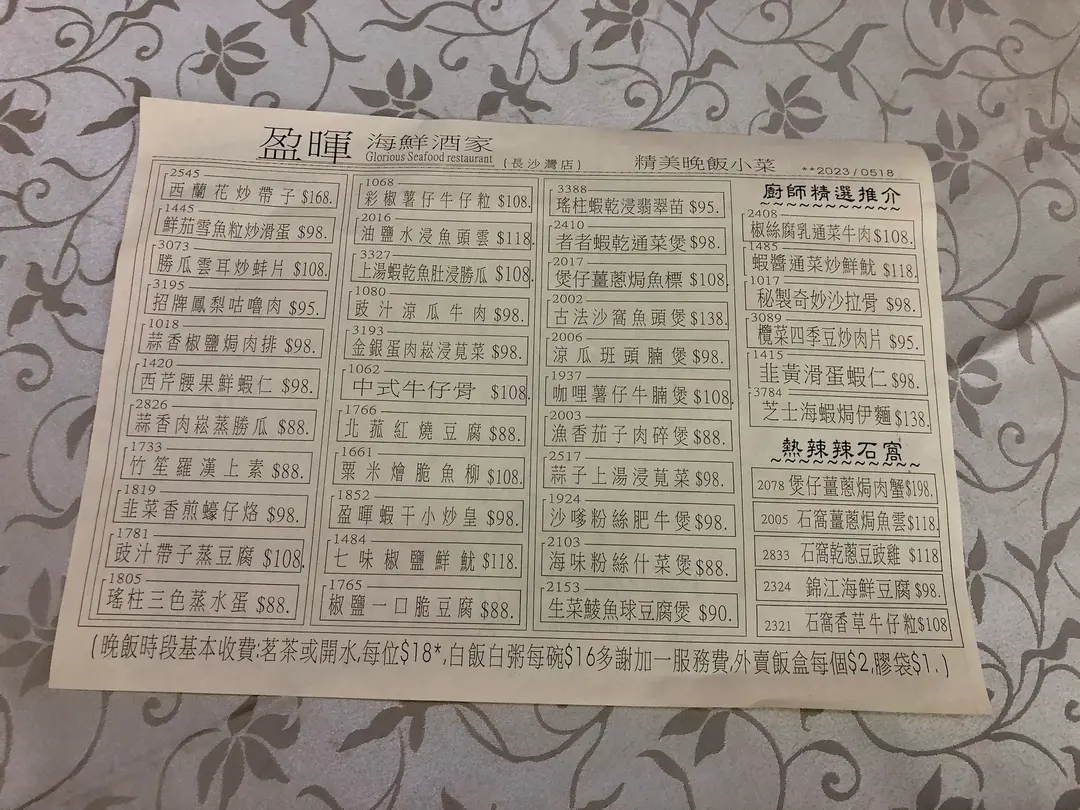 盈暉 海鮮酒家
Glorious Seafood restaurant (長沙灣店) 精美晚飯小菜 **2023/0518
2545
西蘭花炒帶子 $168.
1445
鮮茄雪魚粒炒滑蛋 $98.
3073
勝瓜雲耳炒蚌片 $108.
3195
招牌鳳梨咕嚕肉 $95.
1018
蒜香椒鹽焗肉排 $98.
1420
西芹腰果鮮蝦仁 $98.
2826
蒜香肉崧蒸勝瓜 $88.
1733
竹笙羅漢上素 $88.
1819
韭菜香煎蠔仔烙 $98.
1781
豉汁帶子蒸豆腐 $108.
1805
瑤柱三色蒸水蛋 $88.
1068
彩椒薯仔牛仔粒 $108.
2016
油鹽水浸魚頭雲 $118.
3327
上湯蝦乾魚肚浸勝瓜 $108.
1080
豉汁涼瓜牛肉 $98.
3193
金銀蛋肉崧浸莧菜 $98.
1062
中式牛仔骨 $108
1766
北菰紅燒豆腐 $88.
1661
粟米燴脆魚柳 $108.
1852
盈暉蝦干小炒皇 $98.
1484
七味椒鹽鮮魷 $118.
1765
椒鹽一口脆豆腐 $88.
3388
瑤柱蝦乾浸翡翠苗 $95.
2410
者者蝦乾通菜煲 $98.
2017
煲仔薑蔥焗魚標 $108
2002
古法沙窩魚頭煲 $138.
2006
涼瓜班頭腩煲 $98.
1937
咖喱薯仔牛腩煲 $108.
2003
漁香茄子肉碎煲 $88.
2517
蒜子上湯浸莧菜 $98.
1924
沙嗲粉絲肥牛煲 $98.
2103
海味粉絲什菜煲 $88.
2153
生菜鯪魚球豆腐煲 $90.
廚師精選推介
2408
椒絲腐乳通菜牛肉 $108.
1485
蝦醬通菜炒鮮魷 $118.
1017
秘製奇妙沙拉骨 $98.
3089
欖菜四季豆炒肉片 $95.
1415
韭黃滑蛋蝦仁 $98.
3784
芝士海蝦焗伊麵 $138.
熱辣辣石窩
2078 煲仔薑蔥焗肉蟹 $198.
2005 石窩薑蔥焗魚雲 $118.
2833 石窩乾蔥豆豉雞 $118
2324 錦江海鮮豆腐 $98.
2321 石窩香草牛仔粒 $108
(晚飯時段基本收費:茗茶或開水,每位$18*,白飯白粥每碗$16多謝加一服務費,外賣飯盒每個$2,膠袋$1.)